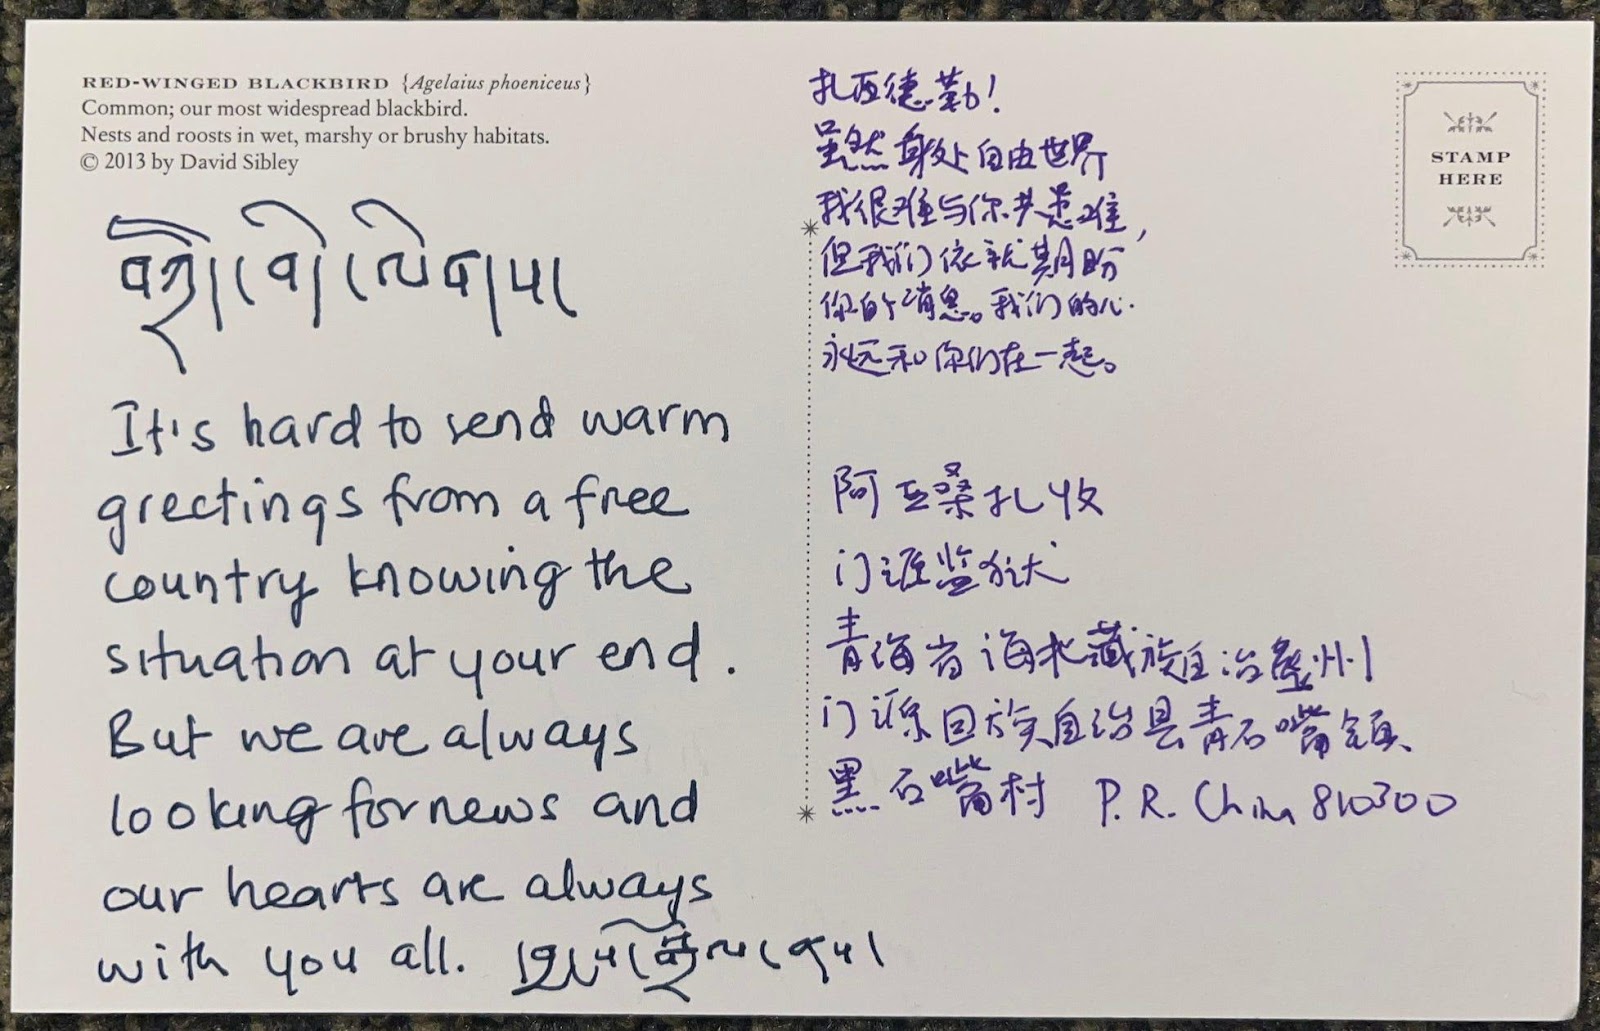 RED-WINGED BLACKBIRD {Agelaius phoeniceus}
Common; our most widespread blackbird.
Nests and roosts in wet, marshy or brushy habitats.
© 2013 by David Sibley
བཀྲ་ཤིས་བདེ་ལེགས།
It's hard to send warm
greetings from a free
country knowing the
situation at your end.
But we are always
looking for news and
our hearts are always
with you all.
扎西德勒!
虽然身处自由世界
我很难与你共患难,
但我们依就期盼
你的消息。我们的心
永远和你们在一起。
STAMP
HERE
阿亚桑扎收
门源监狱
青海省海北藏族自治州
门源回族自治县青石嘴镇
黑石嘴村 P.R. China 810300